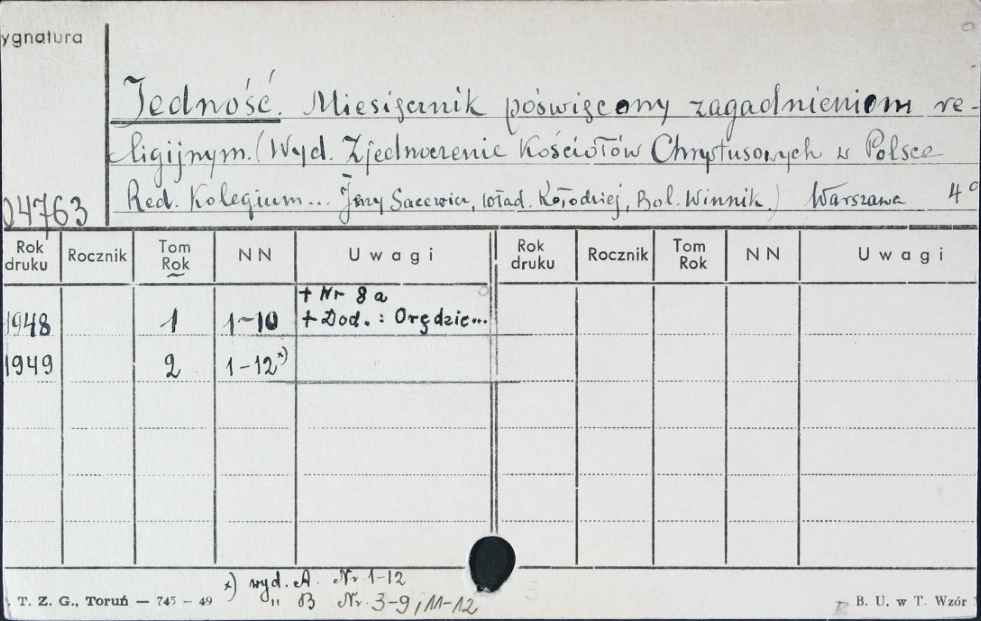 ygnatura
Jedność. Miesięcznik poświęcony zagadnieniom re-
ligijnym. (Wyd. Zjednoczenie Kościołów Chrystusowych w Polsce
04763 Red. Kolegium... Jerzy Sacewicz, Wład. Kołodziej, Bol. Winnik.) Warszawa 4°
Rok druku Rocznik Tom Rok NN Uwagi Rok druku Rocznik Tom Rok NN Uwagi
+ Nr 8 a
1948 1 1-10 + Dod.: Orędzie...
1949 2 1-12 x)
x) wyd. A. Nr 1-12
T. Z. G., Toruń — 745 — 49 " B Nr 3-9, 11-12 B. U. w T. Wzór